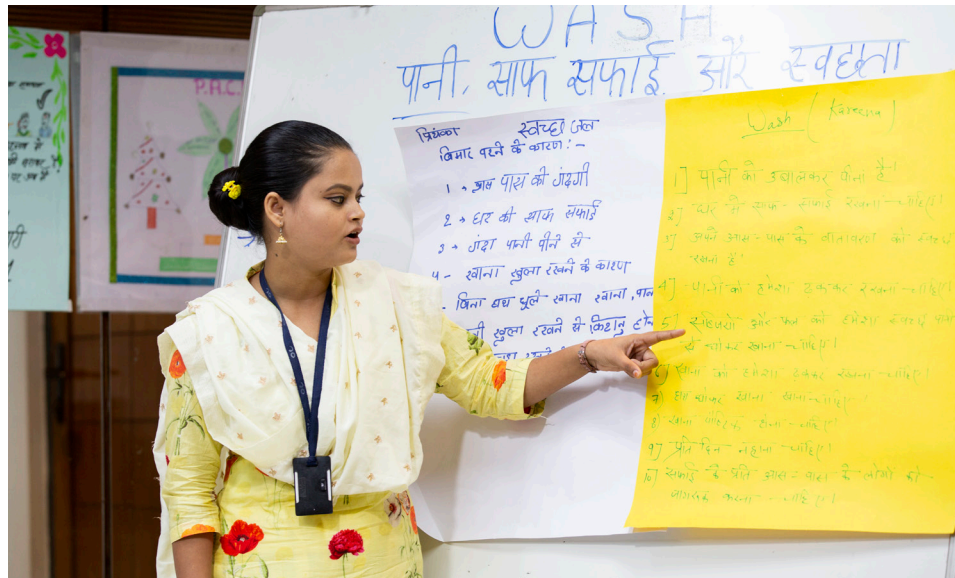 WASH
पानी, साफ सफाई और स्वछता
P.H.C
प्रियंका स्वच्छ जल
बिमार परने के कारण :-
1 → आस पास की गंदगी
2 → घर की साफ सफाई
3 → गंदा पानी पीने से
4 - खाना खुला रखने के कारण
- बिना हाथ धुले खाना खाना, पान
खुला रखने से किटानु होन
Wash (Kareena)
1] पानी को उबालकर पीना है।
2] घर में साफ-सफाई रखना चाहिए।
3] अपने आस-पास के वातावरण को स्वच्छ
रखना है।
4] पानी को हमेशा ढककर रखना चाहिए।
5] सब्जियों और फल को हमेशा स्वच्छ पानी
से धोकर खाना चाहिए।
6] खाना को हमेशा ढककर रखना चाहिए।
7] हाथ धोकर खाना खाना चाहिए।
8] खाना पौष्टिक होना चाहिए।
9] प्रति दिन नहाना चाहिए।
10] सफाई के प्रति आस-पास के लोगों को
जागरूक करना चाहिए।